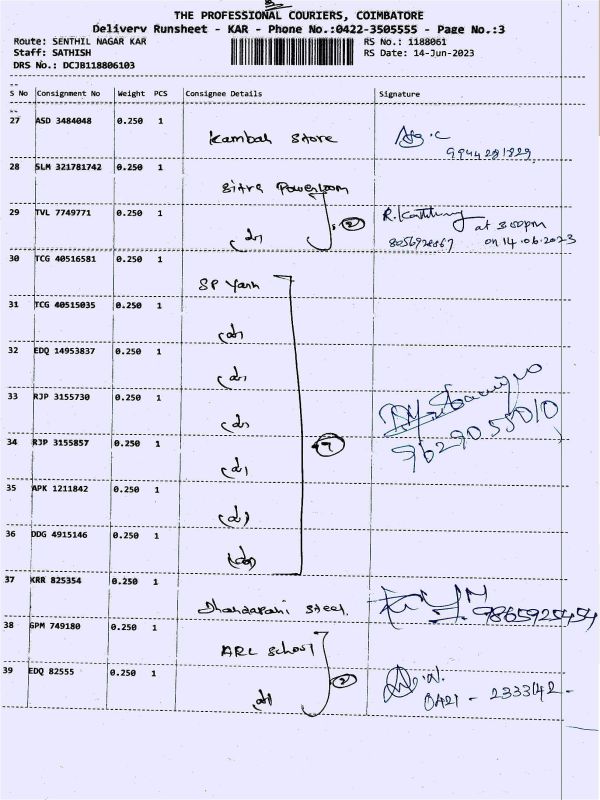 THE PROFESSIONAL COURIERS, COIMBATORE
Delivery Runsheet - KAR - Phone No.:0422-3505555 - Page No.:3
Route: SENTHIL NAGAR KAR RS No.: 1188061
Staff: SATHISH RS Date: 14-Jun-2023
DRS No.: DCJB118806103
S No Consignment No Weight PCS Consignee Details Signature
27 ASD 3484048 0.250 1
Kambah Store
9944281829
28 SLM 321781742 0.250 1
Sitra Powerloom
29 TVL 7749771 0.250 1
2 at 3.00pm
on 14.06.2023
30 TCG 40516581 0.250 1
SP Yarn
31 TCG 40515035 0.250 1
32 EDQ 14953837 0.250 1
33 RJP 3155730 0.250 1
9629055010
34 RJP 3155857 0.250 1
7
35 APK 1211842 0.250 1
36 DDG 4915146 0.250 1
37 KRR 825354 0.250 1
Dhandapani Steel. 9865925454
38 GPM 749180 0.250 1
ARL School
39 EDQ 82555 0.250 1
2
0421 - 2333142 -